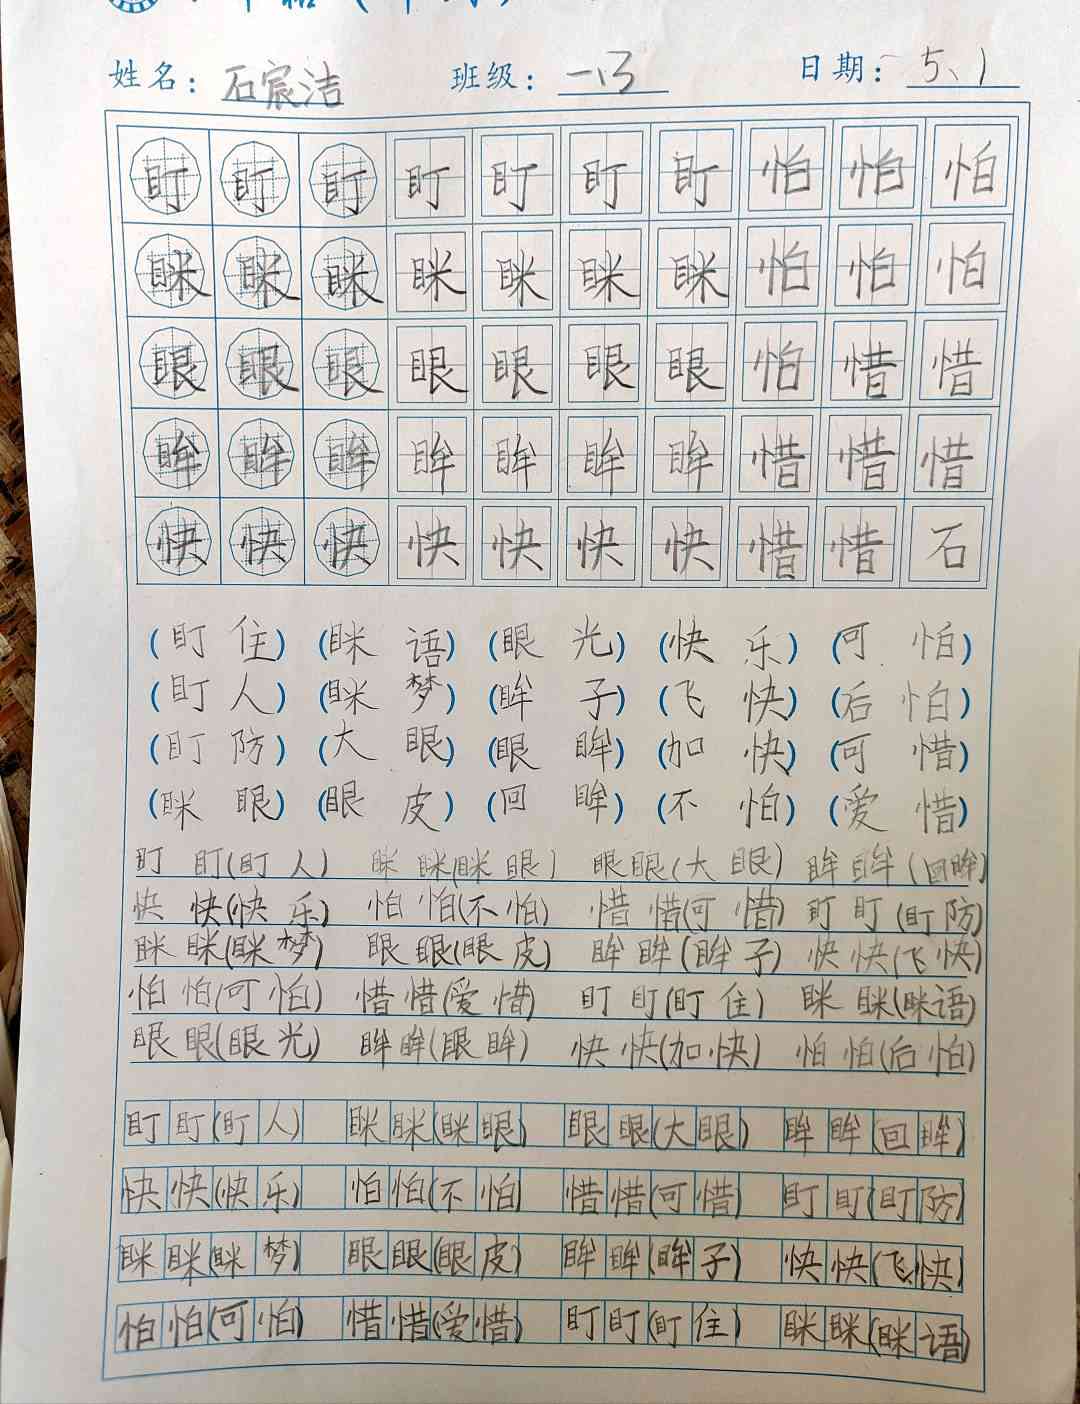 姓名：石宸洁 班级：一.13 日期：5、1
盯 盯 盯 盯 盯 盯 盯 怕 怕 怕
眯 眯 眯 眯 眯 眯 眯 怕 怕 怕
眼 眼 眼 眼 眼 眼 眼 怕 惜 惜
眸 眸 眸 眸 眸 眸 眸 惜 惜 惜
快 快 快 快 快 快 快 惜 惜 石
(盯 住) (眯 语) (眼 光) (快 乐) (可 怕)
(盯 人) (眯 梦) (眸 子) (飞 快) (后 怕)
(盯 防) (大 眼) (眼 眸) (加 快) (可 惜)
(眯 眼) (眼 皮) (回 眸) (不 怕) (爱 惜)
盯 盯(盯 人) 眯 眯(眯 眼) 眼 眼(大 眼) 眸 眸(回眸)
快 快(快 乐) 怕 怕(不 怕) 惜 惜(可 惜) 盯 盯(盯 防)
眯 眯(眯 梦) 眼 眼(眼 皮) 眸 眸(眸 子) 快 快(飞 快)
怕 怕(可 怕) 惜 惜(爱 惜) 盯 盯(盯 住) 眯 眯(眯语)
眼 眼(眼 光) 眸 眸(眼 眸) 快 快(加 快) 怕 怕(后 怕)
盯 盯(盯 人) 眯 眯(眯 眼) 眼 眼(大 眼) 眸 眸(回 眸)
快 快(快 乐) 怕 怕(不 怕) 惜 惜(可 惜) 盯 盯(盯 防)
眯 眯(眯 梦) 眼 眼(眼 皮) 眸 眸(眸 子) 快 快(飞 快)
怕 怕(可 怕) 惜 惜(爱 惜) 盯 盯(盯 住) 眯 眯(眯 语)